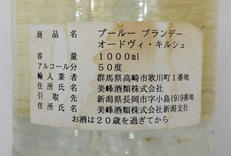 商品名 プールー ブランデー
オードヴィ・キルシュ
容量 1000ml
アルコール分 50度
輸入業者 群馬県高崎市歌川町1番地
住所氏名 美峰酒類株式会社
引取先 新潟県長岡市字小島1919番地
住所氏名 美峰酒類株式会社新潟支社
お酒は20歳を過ぎてから